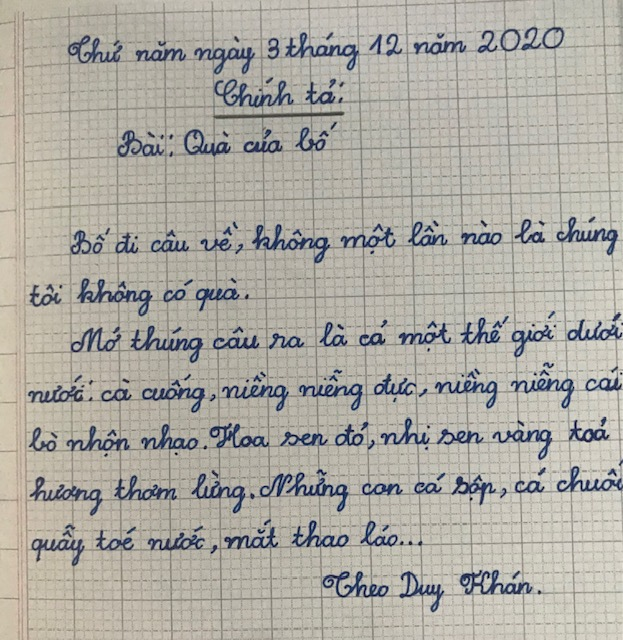 Thứ năm ngày 3 tháng 12 năm 2020
Chính tả:
Bài: Quà của bố
Bố đi câu về, không một lần nào là chúng
tôi không có quà.
Mở thúng câu ra là cả một thế giới dưới
nước: cà cuống, niềng niễng đực, niềng niễng cái
bò nhộn nhạo. Hoa sen đỏ, nhị sen vàng toả
hương thơm lừng. Những con cá sộp, cá chuối
quẫy toé nước, mắt thao láo...
Theo Duy Khán.